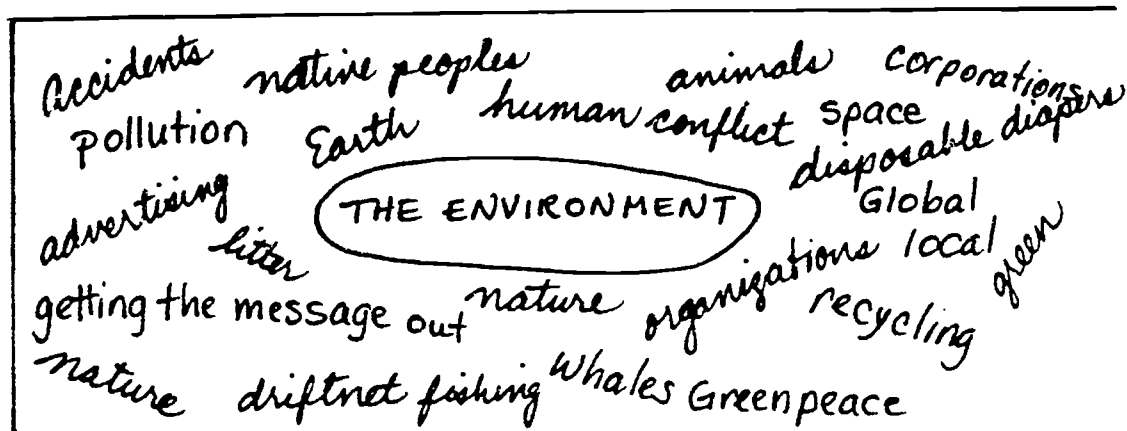 Accidents native peoples animals corporations
pollution Earth human conflict space disposable diapers
advertising THE ENVIRONMENT Global
litter organizations local green
getting the message out nature recycling
nature driftnet fishing Whales Greenpeace